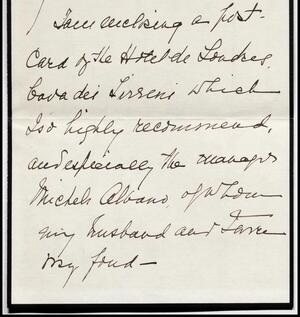 I am enclosing a post-
Card of the Hotel de Londres,
Cava dei Tirreni which
I so highly recommend,
and especially the manager
Michele Albano, of whom
my husband and I are
very fond—